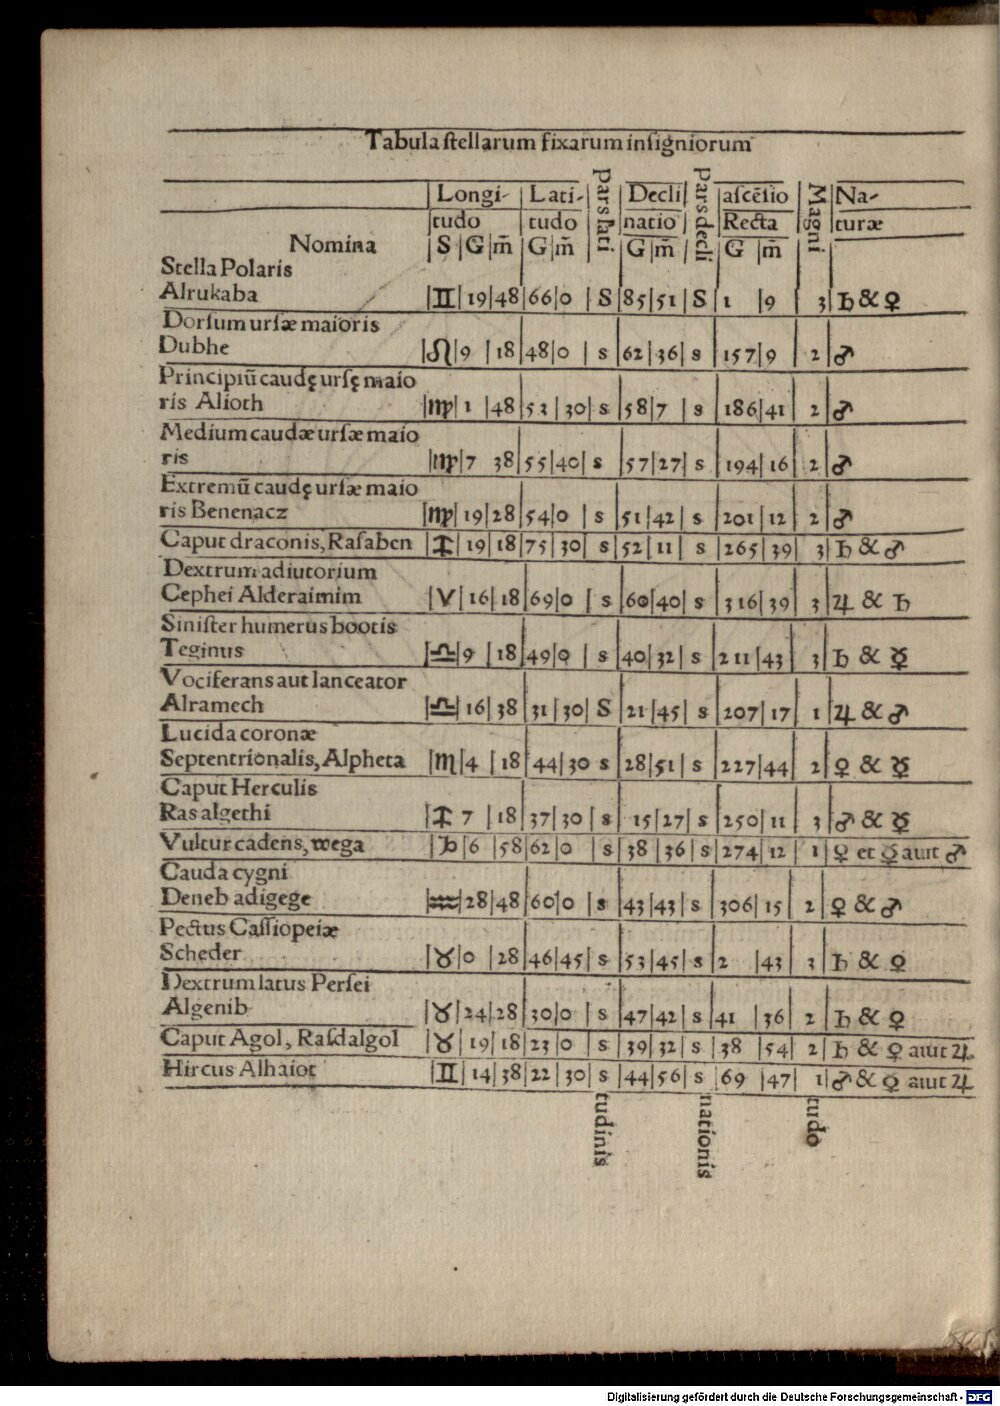 Tabula stellarum fixarum insigniorum
Nomina | Longitudo S G m̃ | Latitudo G m̃ | Pars lati | Declinatio G m̃ | Pars decli | ascẽsio Recta G m̃ | Magni | Naturæ
Stella Polaris
Alrukaba |♊| 19|48|66|0 | S |85|51| S |1 |9 | 3|♄ & ♀
Dorsum ursæ maioris
Dubhe |♌|9 |18|48|0 | s |62|36| s |157|9 | 2|♂
Principiũ caudę ursę maio
ris Alioth |♍|1 |48|53|30| s |58|7 | s |186|41| 2|♂
Medium caudæ ursæ maio
ris |♍|7 38|55|40| s |57|27| s |194|16| 2|♂
Extremũ caudę ursæ maio
ris Benenacz |♍|19|28|54|0 | s |51|42| s |201|12| 2|♂
Caput draconis, Rasaben |♐|19|18|75|30| s |52|11| s |265|39| 3|♄ & ♂
Dextrum adiutorium
Cephei Alderaimim |♈|16|18|69|0 | s |60|40| s |316|39| 3|♃ & ♄
Sinister humerus bootis
Teginus |♎|9 |18|49|0 | s |40|32| s |211|43| 3|♄ & ☿
Vociferans aut lanceator
Alramech |♎|16|38|31|30| S |21|45| s |207|17| 1|♃ & ♂
Lucida coronæ
Septentrionalis, Alpheta |♏|4 |18|44|30 s |28|51| s |227|44| 2|♀ & ☿
Caput Herculis
Rasalgethi |♐ 7 |18|37|30| s | 15|27| s |250|11| 3|♂ & ☿
Vultur cadens, wega |♑|6 |58|62|0 | s |38|36| s |274|12| 1|♀ et ☿ aut ♂
Cauda cygni
Deneb adigege |♒|28|48|60|0 | s |43|43| s |306|15| 2|♀ & ♂
Pectus Cassiopeiæ
Scheder |♉|0 |28|46|45| s |53|45| s |2 |43| 3|♄ & ♀
Dextrum latus Persei
Algenib |♉|24|28|30|0 | s |47|42| s |41 |36| 2|♄ & ♀
Caput Agol, Rasdalgol |♉|19|18|23|0 | s |39|32| s |38 |54| 2|♄ & ♀ aut ♃
Hircus Alhaiot |♊|14|38|22|30| s |44|56| s |69 |47| 1|♂ & ☿ aut ♃
tudinis
nationis
tudo
Digitalisierung gefördert durch die Deutsche Forschungsgemeinschaft - DFG